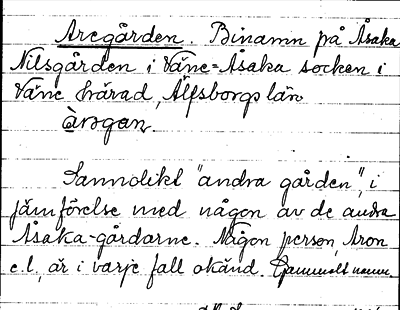 Aregården. Binamn på Åsaka
Nilsgården i Väne-Åsaka socken i
Väne härad, Älfsborgs län
Sannolikt "andra gården", i
jämförelse med någon av de andra
Åsaka-gårdarne. Någon person, Aron
e.l., är i varje fall okänd. Gammalt namn.